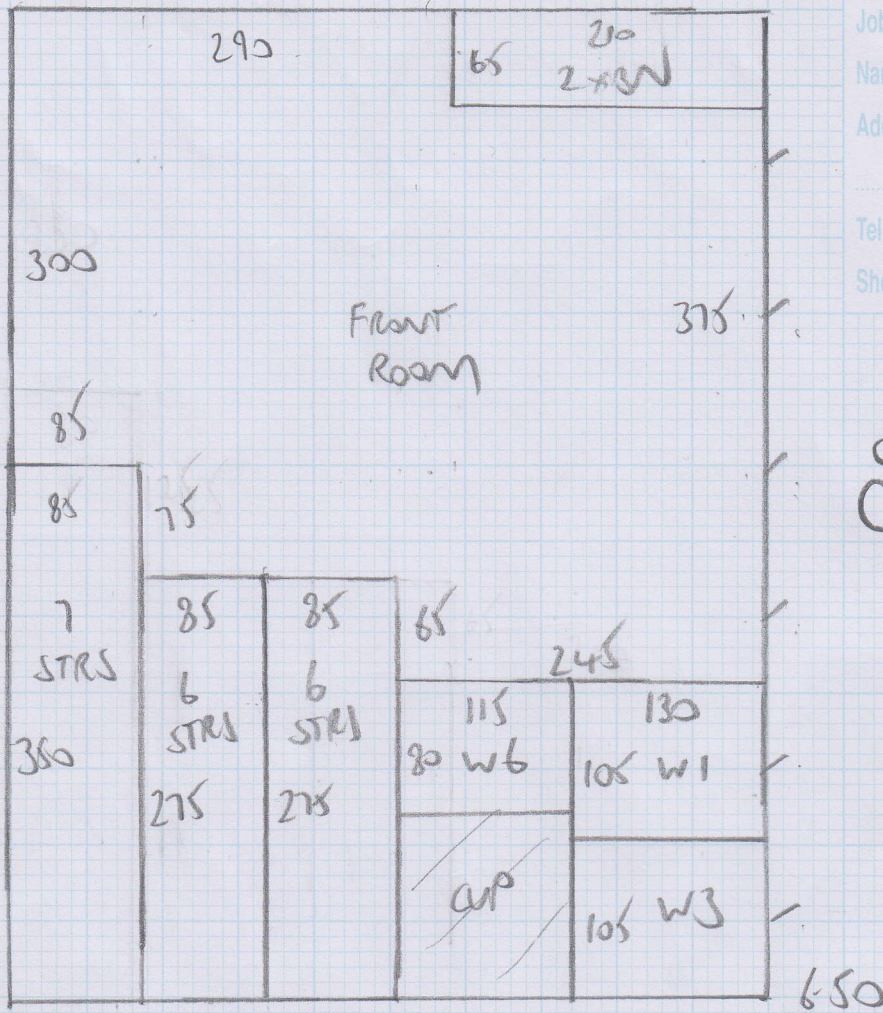 290
65
210
2xBN
Job
Nam
Add
Tel
She
300
FRONT
ROOM
375
85
85
75
7
STRS
350
85
6
STRS
275
85
6
STRS
275
65
245
115
80 W6
130
105 W1
CUP
105 W3
6-50